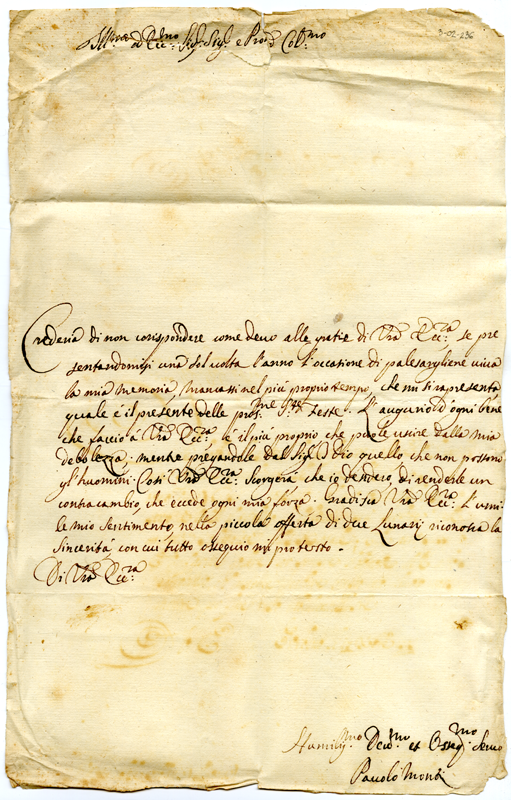 Ill.mo ed Ecc.mo Sig.r Sig.r e Pron. Col.mo
9-02-236
Crederia di non corispondere come devo alle gratie di Vra Ecc.za se pre
sentandomisi una sol volta l'anno l'occasione di palesargliene viva
la mia memoria, mancassi nel più proprio tempo, che mi si rapresenta
quale é il presente delle pros.me S.te Feste. L'augurio d'ogni bene
che faccio à Vra Ecc.za é il più proprio che puole uscire dalla mia
debolezza. mentre pregandole dal Sig.r Iddio quello che non possono
gl'huomini. Così Vra Ecc.za scorgerà che io desidero di rendere un
contracambio, che ecede ogni mia forza. Vra Ecc.za L'umi
le mio sentimento nella piccola offerta di due Lunarij riconosca la
sincerità con cui tutto ossequio mi protesto.
Di Vra Ecc.za
Humiliss.mo Dev.mo et Osseq.mo Servo
Pauolo Monti